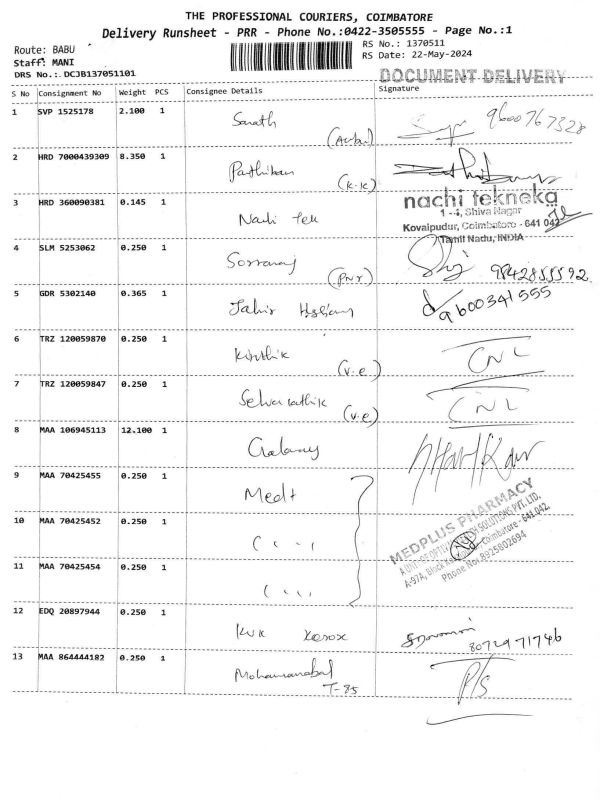 THE PROFESSIONAL COURIERS, COIMBATORE
Delivery Runsheet - PRR - Phone No.:0422-3505555 - Page No.:1
Route: BABU
Staff: MANI
DRS No.: DCJB137051101
RS No.: 1370511
RS Date: 22-May-2024
DOCUMENT DELIVERY
S No Consignment No Weight PCS Consignee Details Signature
1 SVP 1525178 2.100 1 Sarath 9600767328
2 HRD 7000439309 8.350 1 Parthiban
(K.K)
3 HRD 360090381 0.145 1 Nachi Tek
nachi tekneka
1 -4, Shiva Nagar
Kovaipudur, Coimbatore - 641 042
Tamil Nadu, INDIA
4 SLM 5253062 0.250 1
9842855592
5 GDR 5302140 0.365 1
9600341555
6 TRZ 120059870 0.250 1 Kirthik CNL
(V.e)
7 TRZ 120059847 0.250 1 Selvakathik CNL
(V.e)
8 MAA 106945113 12.100 1 Galaxy
9 MAA 70425455 0.250 1 Med+
10 MAA 70425452 0.250 1
11 MAA 70425454 0.250 1
MEDPLUS PHARMACY
Coimbatore - 641 042.
Phone No.8925802694
12 EDQ 20897944 0.250 1 KVK Xerox
8072971746
13 MAA 864444182 0.250 1 P/s
T-85